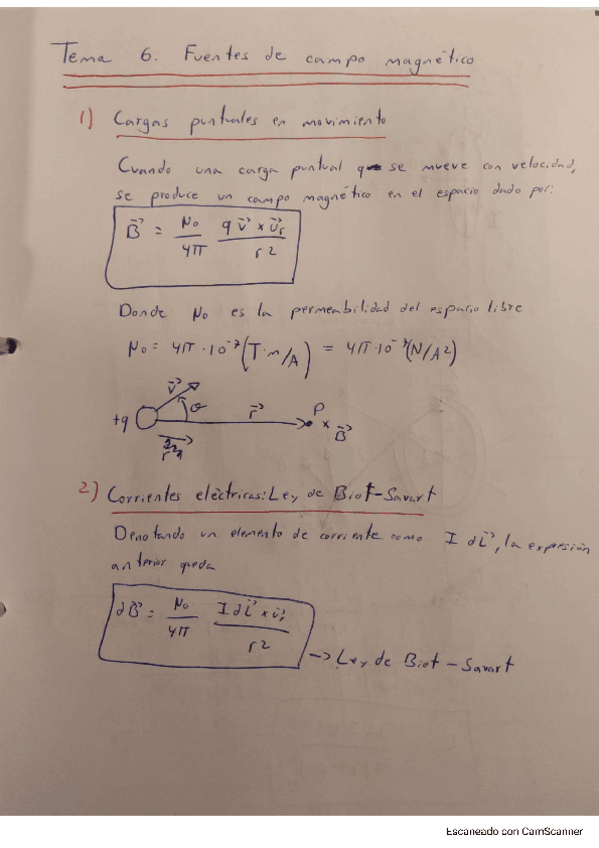 Tema 6. Fuentes de campo magnético
1) Cargas puntuales en movimiento
Cuando una carga puntual q se mueve con velocidad,
se produce un campo magnético en el espacio dado por:
B⃗ = μ₀/4π · q v⃗ × u⃗r / r²
Donde μ₀ es la permeabilidad del espacio libre
μ₀ = 4π·10⁻⁷ (T·m/A) = 4π·10⁻⁷ (N/A²)
+q v⃗ θ r⃗ P × B⃗
2) Corrientes eléctricas: Ley de Biot-Savart
Denotando un elemento de corriente como I dL⃗, la expresión
anterior queda
dB⃗ = μ₀/4π · I dL⃗ × u⃗r / r²
→ Ley de Biot - Savart
Escaneado con CamScanner